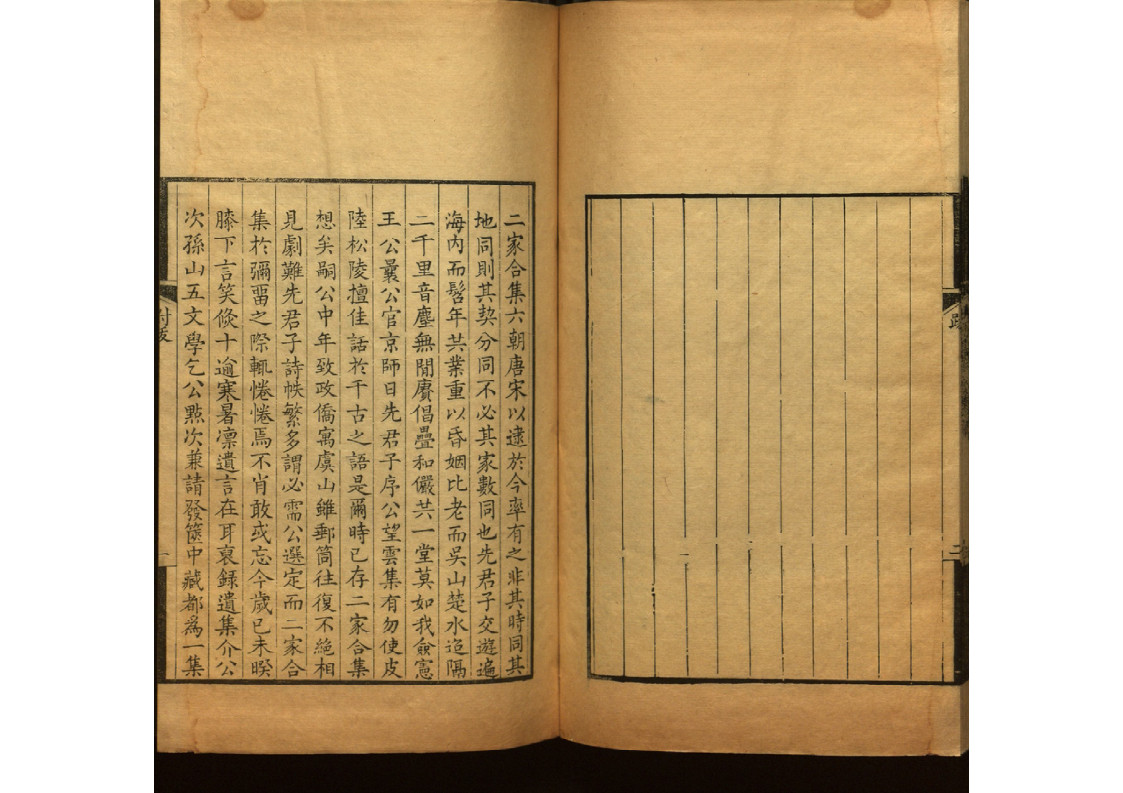 跋
二
二家合集六朝唐宋以逮於今率有之非其時同其
地同則其契分同不必其家數同也先君子交遊遍
海內而髫年共業重以昏姻比老而吳山楚水迢隔
二千里音塵無閒賡倡疊和儼共一堂莫如我僉憲
王公曩公官京師日先君子序公望雲集有勿使皮
陸松陵擅佳話於千古之語是爾時已存二家合集
想矣嗣公中年致政僑寓虞山雖郵筒往復不絕相
見劇難先君子詩帙繁多謂必需公選定而二家合
集於彌留之際輒惓惓焉不肖敢或忘今歲已未暌
膝下言笑倏十逾寒暑凛遺言在耳裒錄遺集介公
次孫山五文學乞公點次兼請發篋中藏都為一集
附跋
一